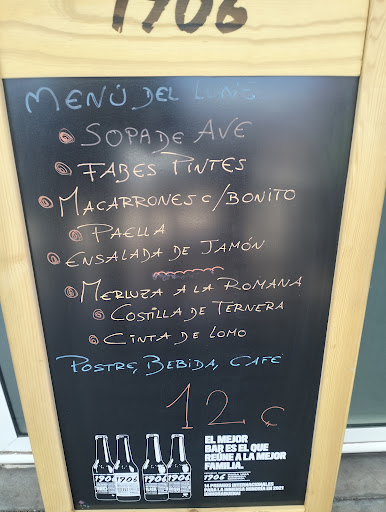 1906
MENÚ DEL LUNES
SOPA DE AVE
FABES PINTES
MACARRONES C/BONITO
PAELLA
ENSALADA DE JAMÓN
MERLUZA A LA ROMANA
COSTILLA DE TERNERA
CINTA DE LOMO
POSTRE, BEBIDA, CAFÉ
12 €
EL MEJOR
BAR ES EL QUE
REÚNE A LA MEJOR
FAMILIA.
1906
1906
1906
1906
1906
14 PREMIOS INTERNACIONALES
PARA LA INMENSA MINORÍA EN 2021